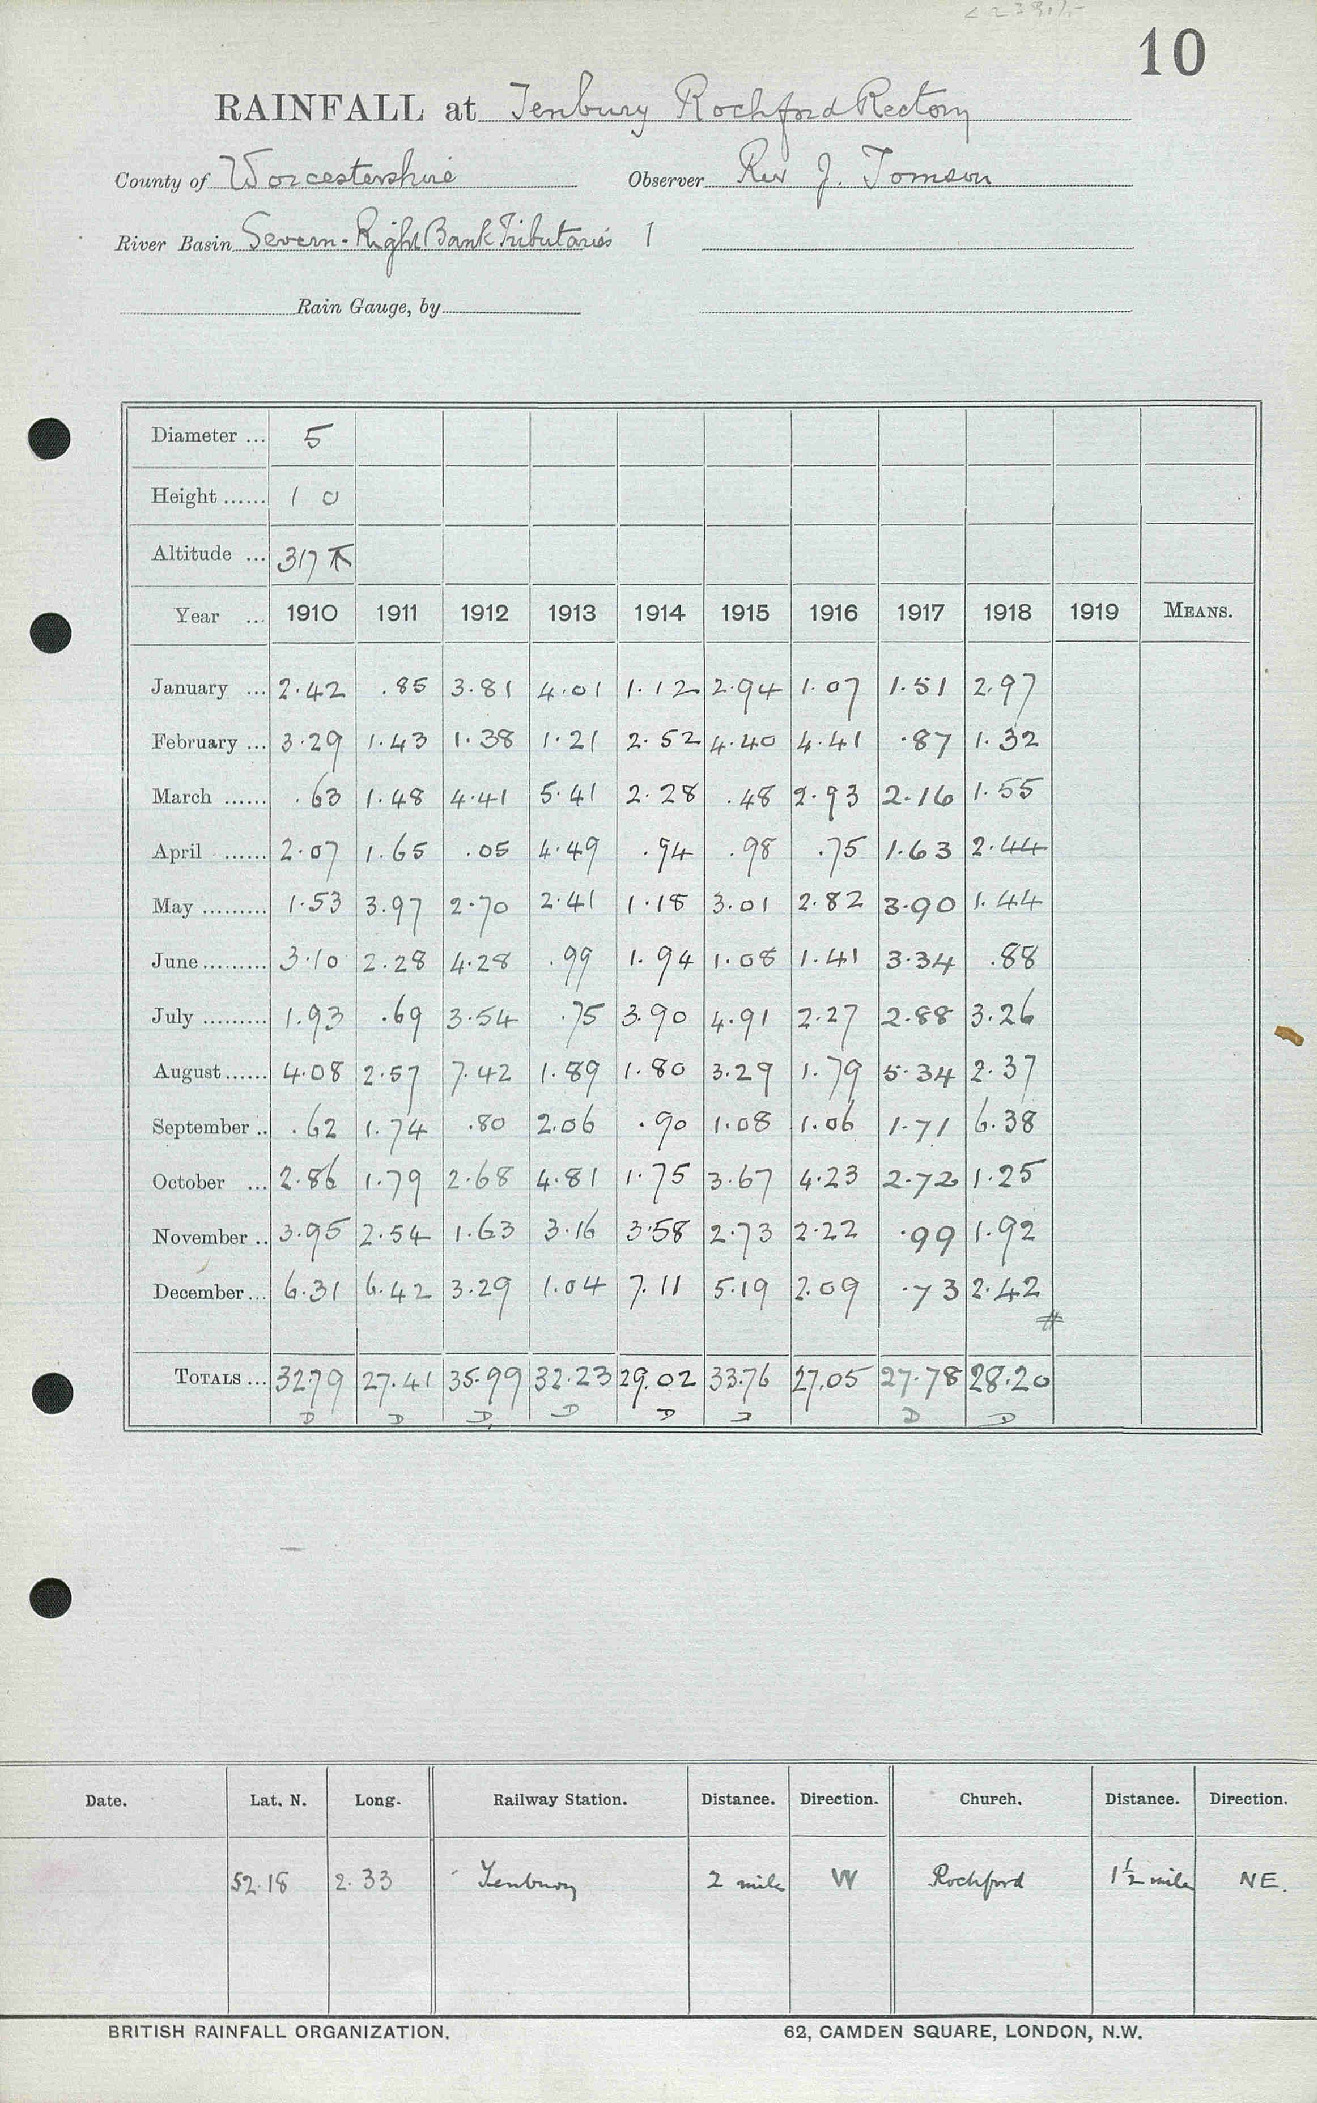 10
RAINFALL at Tenbury Rochford Rectory
County of Worcestershire Observer Rev J. Tomson
River Basin Severn. Right Bank Tributaries 1
Rain Gauge, by
Diameter ... 5
Height ...... 1 0
Altitude ... 317
Year ... 1910 1911 1912 1913 1914 1915 1916 1917 1918 1919 MEANS.
January ... 2.42 .85 3.81 4.01 1.12 2.94 1.07 1.51 2.97
February ... 3.29 1.43 1.38 1.21 2.52 4.40 4.41 .87 1.32
March ...... .63 1.48 4.41 5.41 2.28 .48 2.93 2.16 1.55
April ....... 2.07 1.65 .05 4.49 .94 .98 .75 1.63 2.44
May ......... 1.53 3.97 2.70 2.41 1.18 3.01 2.82 3.90 1.44
June ......... 3.10 2.28 4.28 .99 1.94 1.08 1.41 3.34 .88
July ......... 1.93 .69 3.54 .75 3.90 4.91 2.27 2.88 3.26
August ...... 4.08 2.57 7.42 1.89 1.80 3.29 1.79 5.34 2.37
September .. .62 1.74 .80 2.06 .90 1.08 1.06 1.71 6.38
October ... 2.86 1.79 2.68 4.81 1.75 3.67 4.23 2.72 1.25
November .. 3.95 2.54 1.63 3.16 3.58 2.73 2.22 .99 1.92
December ... 6.31 6.42 3.29 1.04 7.11 5.19 2.09 .73 2.42
#
TOTALS ... 32.79 27.41 35.99 32.23 29.02 33.76 27.05 27.78 28.20
D D D D D D D D
Date. Lat. N. Long. Railway Station. Distance. Direction. Church. Distance. Direction.
52.18 2.33 Tenbury 2 miles W Rochford 1½ mile NE.
BRITISH RAINFALL ORGANIZATION. 62, CAMDEN SQUARE, LONDON, N.W.